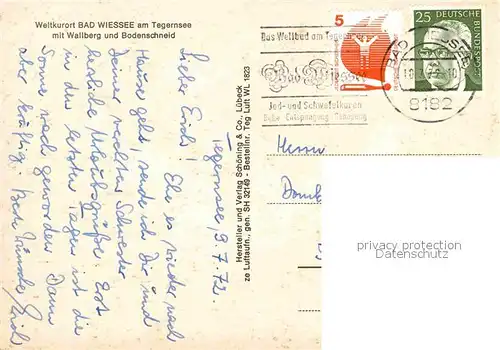 Weltkurort BAD WIESSEE am Tegernsee
mit Wallberg und Bodenschneid
Tegernsee, 9.7.72.
Lieber Erich! Ehe es wieder nach
Hause geht, sende ich Dir und
Deiner werten Schwester
herzliche Urlaubsgrüße. Erst
in den letzten Tagen ist die
Sonne wach geworden. Dann
aber kräftig.
Hersteller und Verlag Schöning & Co., Lübeck
ze Luftaufn., gen. SH 32149 - Bestellnr. Teg Luft WL 1823
Das Weltbad am Tegernsee
Bad Wiessee
Jod- und Schwefelkuren
Ruhe Entspannung Erholung
5
25
DEUTSCHE
BUNDESPOST
BAD WIESSEE
8182
Herrn
privacy protection
Datenschutz